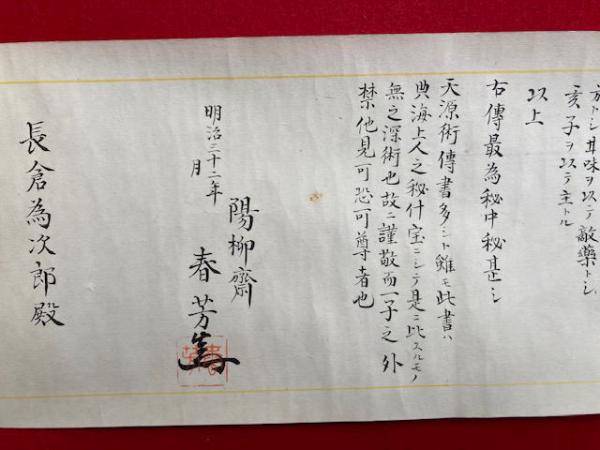 方トシ其味ヲ以テ敵藥トシ
亥子ヲ以テ主トル
以上
右傳最為秘中秘甚シ
天源術傳書多シト雖モ此書ハ
典海上人之秘什宝ニシテ是ニ比スルモノ
無之深術也故ニ謹敬而一子之外
禁他見可恐可尊者也
明治三十二年
月
陽柳齋
春芳
長倉為次郎殿